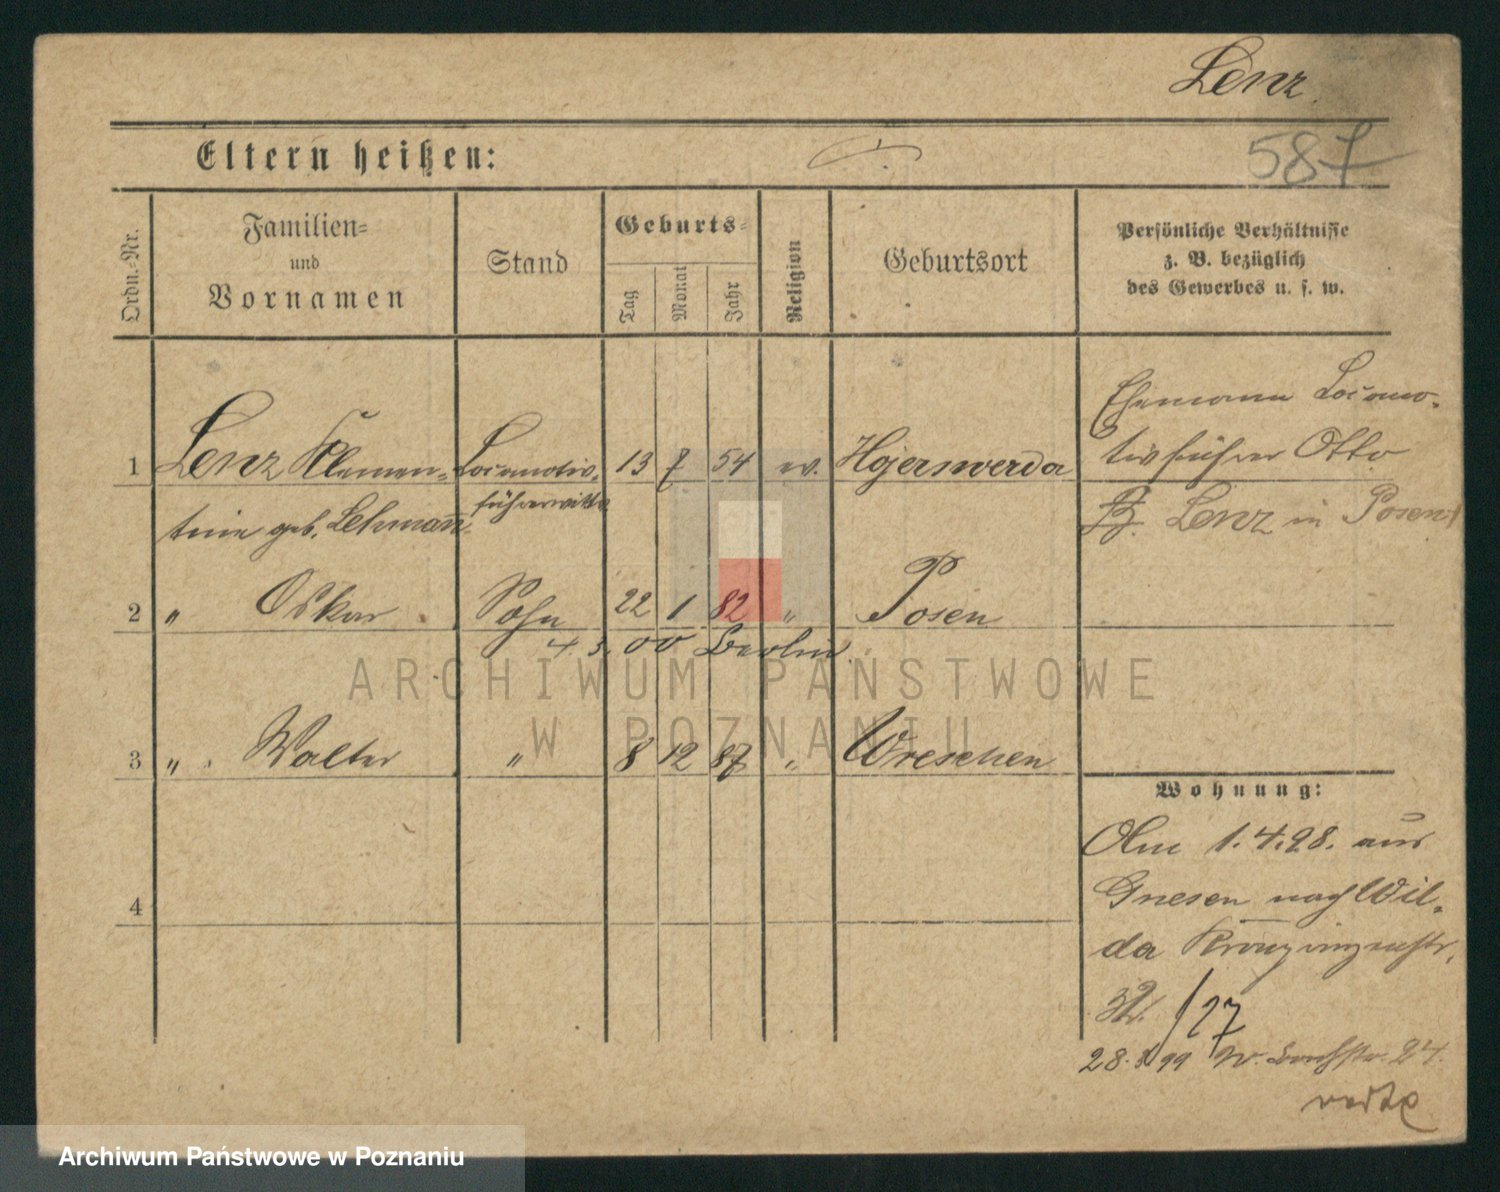 Lenz
Eltern heißen:
587
Ordn.-Nr.
Familien=
und
Vornamen
Stand
Geburts=
Tag
Monat
Jahr
Religion
Geburtsort
Persönliche Verhältnisse
z. B. bezüglich
des Gewerbes u. s. w.
1 Lenz Klemen= Locomotiv= 13 7 54 ev. Hojerswerda
tine geb. Lehmann führerwittwe
Ehemann Locomo-
tivführer Otto
Lenz in Posen
2 " Oskar Sohn 22 1 82 " Posen
4.3.00 Berlin
3 " Walter " 8 12 87 " Wreschen
4
Wohnung:
Am 1.4.98. aus
Gnesen nach Wil-
da
32. / 27
28. 99 W. 24.
ARCHIWUM PAŃSTWOWE
W POZNANIU
Archiwum Państwowe w Poznaniu